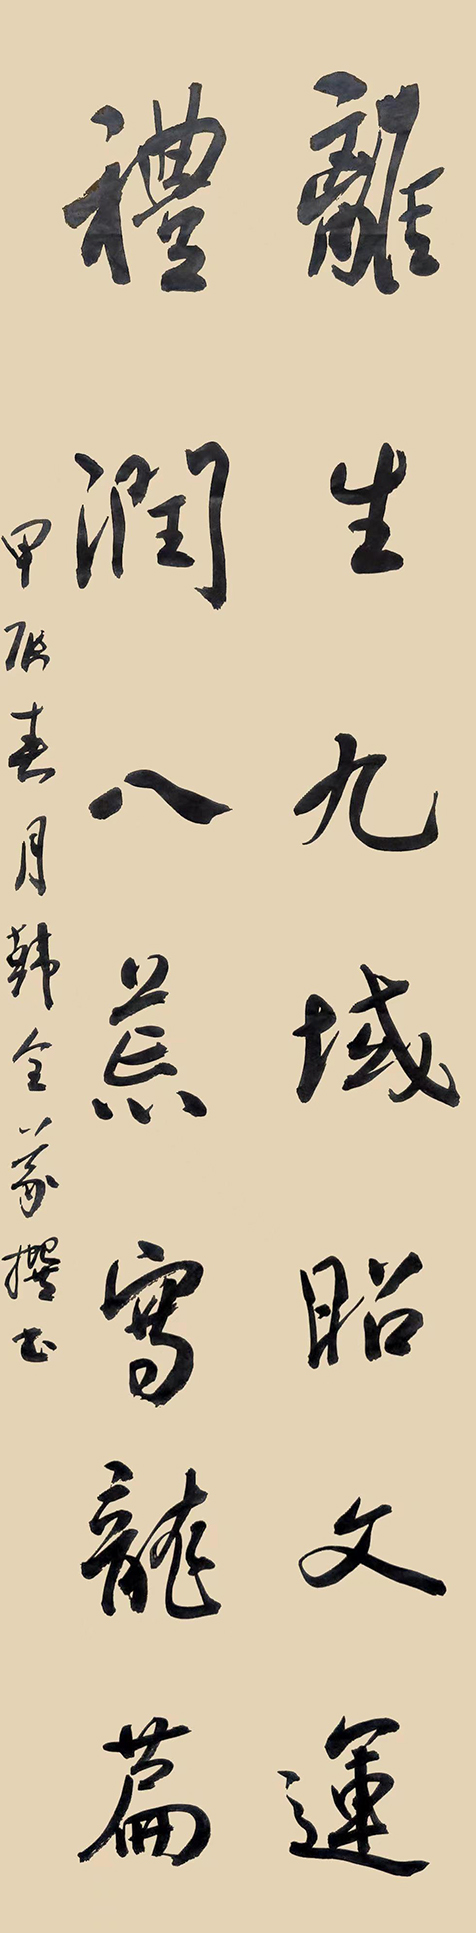 離生九域昭文運
禮潤八荒寫龍篇
甲辰春月韓全義撰书